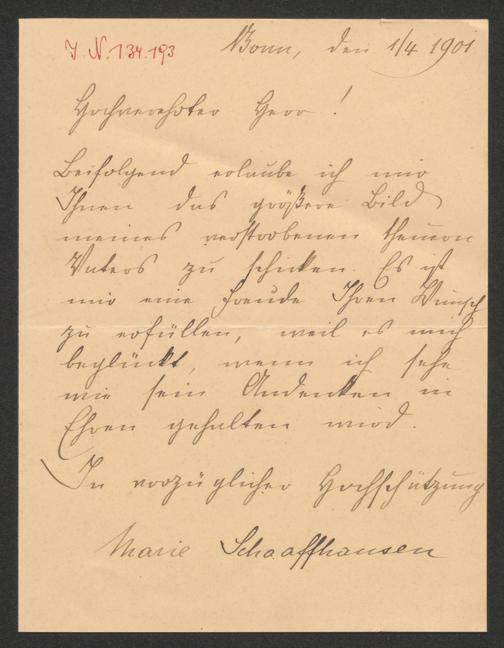 J. N. 134.193
Bonn, den 1/4 1901
Hochverehrter Herr!
Beifolgend erlaube ich mir
Ihnen das größere Bild
meines verstorbenen theuern
Vaters zu schicken. Es ist
mir eine Freude Ihren Wunsch
zu erfüllen, weil es mich
beglückt, wenn ich sehe
wie sein Andenken in
Ehren gehalten wird.
In vorzüglicher Hochschätzung
Marie Schaaffhausen